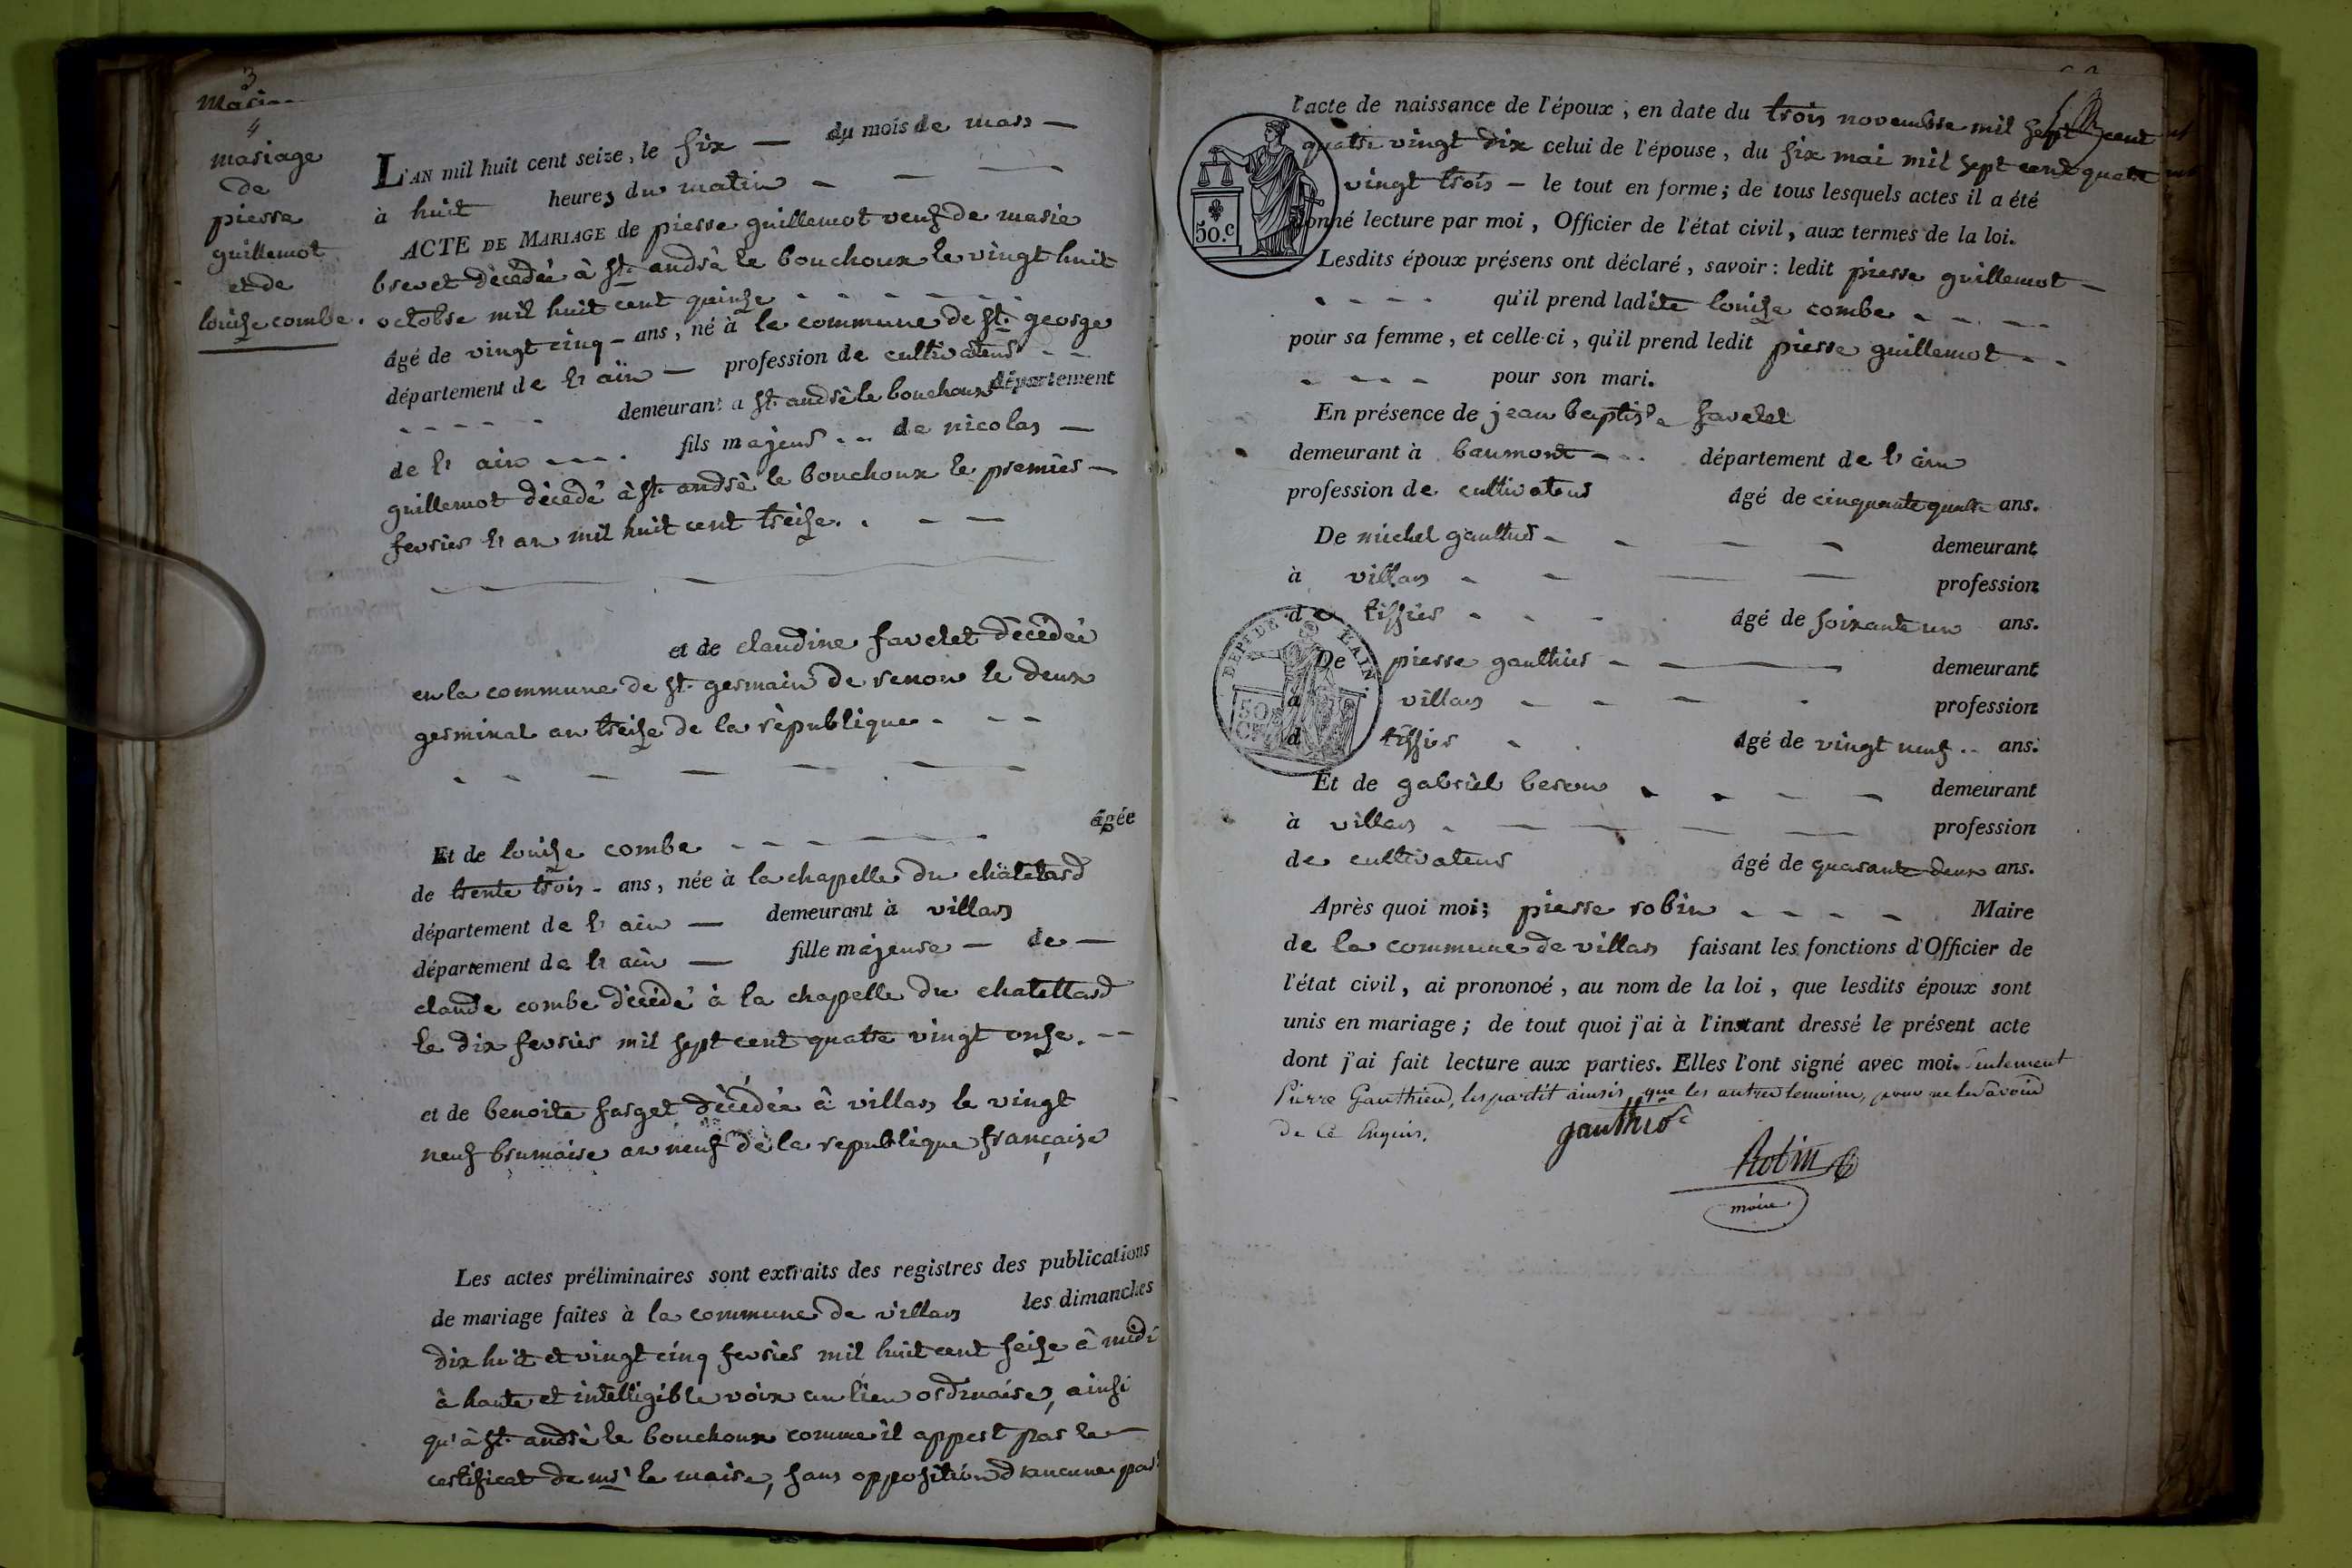 3
Mari
4
mariage
de
pierre
guillemot
et de
louise combe.
L'AN mil huit cent seize, le six — du mois de mars —
à huit heures du matin —
ACTE DE MARIAGE de pierre guillemot veuf de marie
brevet décédée à st. andré le bouchoux le vingt huit
octobre mil huit cent quinze
âgé de vingt cinq - ans, né à la commune de st. george
département de l'ain — profession de cultivateur
demeurant a st. andré le bouchoux département
de l'ain fils majeur de nicolas —
guillemot décedé à st. andré le bouchoux le premier —
fevrier l'an mil huit cent treize.
et de claudine favelet décédée
en la commune de st. germain de renon le deux
germinal an treize de la république
Et de louise combe âgée
de trente trois - ans, née à la chapelle du châtelard
département de l'ain — demeurant à villars
département de l'ain — fille majeure — de —
claude combe décédé à la chapelle du chatellard
le dix fevrier mil sept cent quatre vingt onze.
et de benoite farget décédée à villars le vingt
neuf brumaire an neuf de la republique française
Les actes préliminaires sont extraits des registres des publications
de mariage faites à la commune de villars les dimanches
dix huit et vingt cinq fevrier mil huit cent seize à midi
à haute et intelligible voix au lieu ordinaire, ainsi
qu'à st. andré le bouchoux comme il appert par le
certificat de mr. le maire, sans opposition d'aucune part
l'acte de naissance de l'époux, en date du trois novembre mil sept cent
quatre vingt dix celui de l'épouse, du six mai mil sept cent quatre
vingt trois — le tout en forme; de tous lesquels actes il a été
donné lecture par moi, Officier de l'état civil, aux termes de la loi.
50.c
Lesdits époux présens ont déclaré, savoir: ledit pierre guillemot —
qu'il prend ladite louise combe
pour sa femme, et celle-ci, qu'il prend ledit pierre guillemot
pour son mari.
En présence de jean baptiste favelet
demeurant à baumont département de l'ain
profession de cultivateur âgé de cinquante quatre ans.
De michel gauthier demeurant
à villars profession
de tissier âgé de soixante un ans.
DEPT DE L'AIN.
50
De pierre gauthier demeurant
à villars profession
d tissier âgé de vingt neuf ans.
Et de gabriel beron demeurant
à villars profession
de cultivateur âgé de quarante deux ans.
Après quoi moi; pierre robin Maire
de la commune de villars faisant les fonctions d'Officier de
l'état civil, ai prononoé, au nom de la loi, que lesdits époux sont
unis en mariage; de tout quoi j'ai à l'instant dressé le présent acte
dont j'ai fait lecture aux parties. Elles l'ont signé avec moi.
Pierre Gauthier, les partit ainsis que les autres temoins, pour ne le savoir
de ce Enquis.
gauthier
Robin
maire